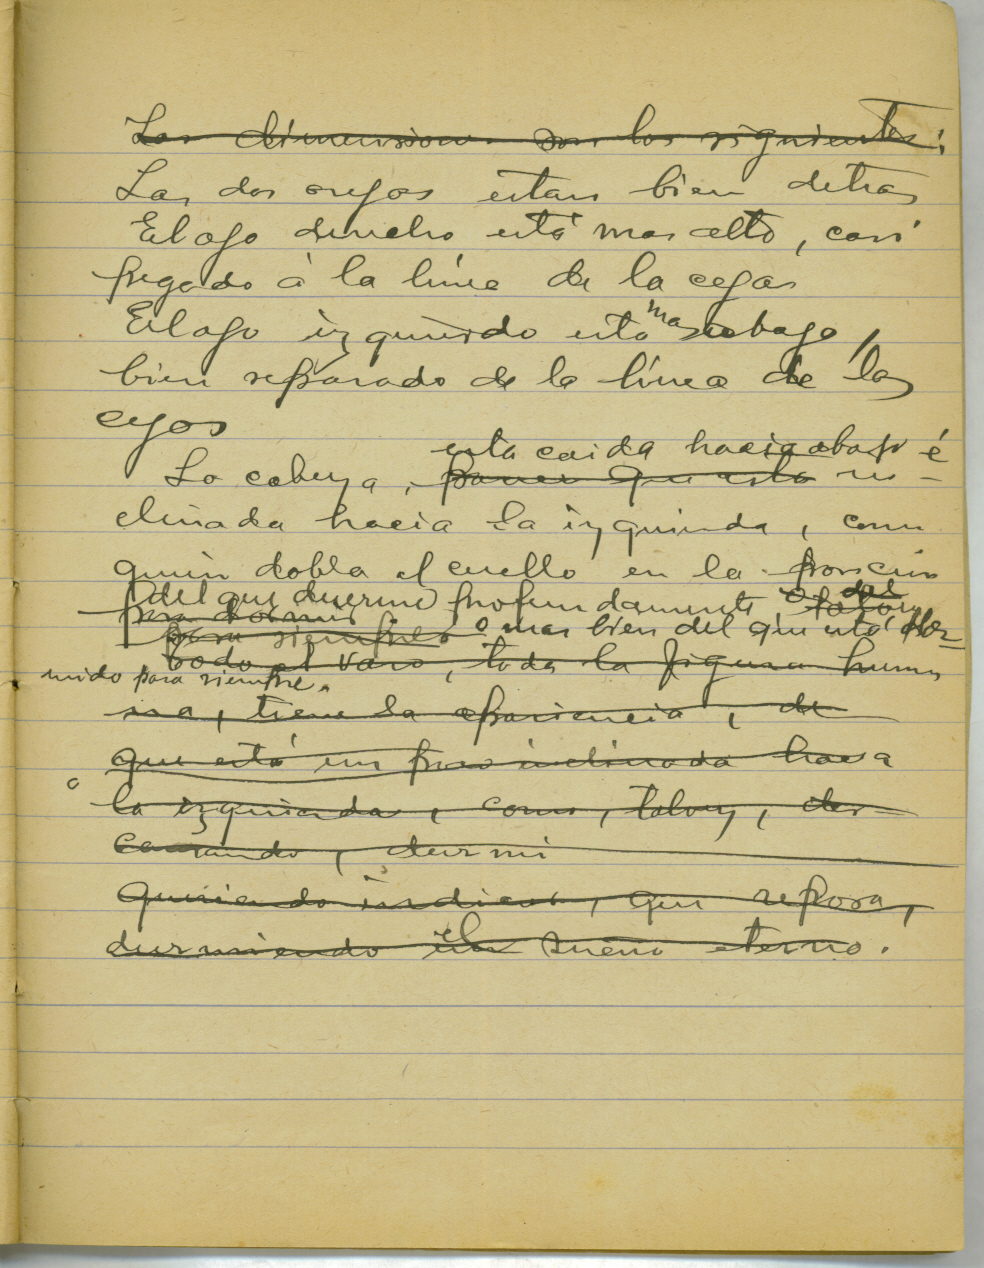 Las dimensiones son las siguientes:
Las dos orejas estan bien detras
El ojo derecho está mas alto, casi
pegado á la linea de la cejas
El ojo izquierdo esta mas abajo,
bien separado de la línea de las
cejas
esta caida hacia abajo é
La cabeza, parece que esta in-
clinada hacia la izquierda, como
quien dobla el cuello en la posicion
del que duerme profundamente, o
para dormir
para siempre o mas bien del que está dor-
todo el vaso, toda la figura huma
mido para siempre.
na, tiene la apariencia, de
que está un poco inclinada hacia
la izquierda, como, talvez, des-
cansando, durmi
queriendo indicar, que reposa,
durmiendo el sueño eterno.